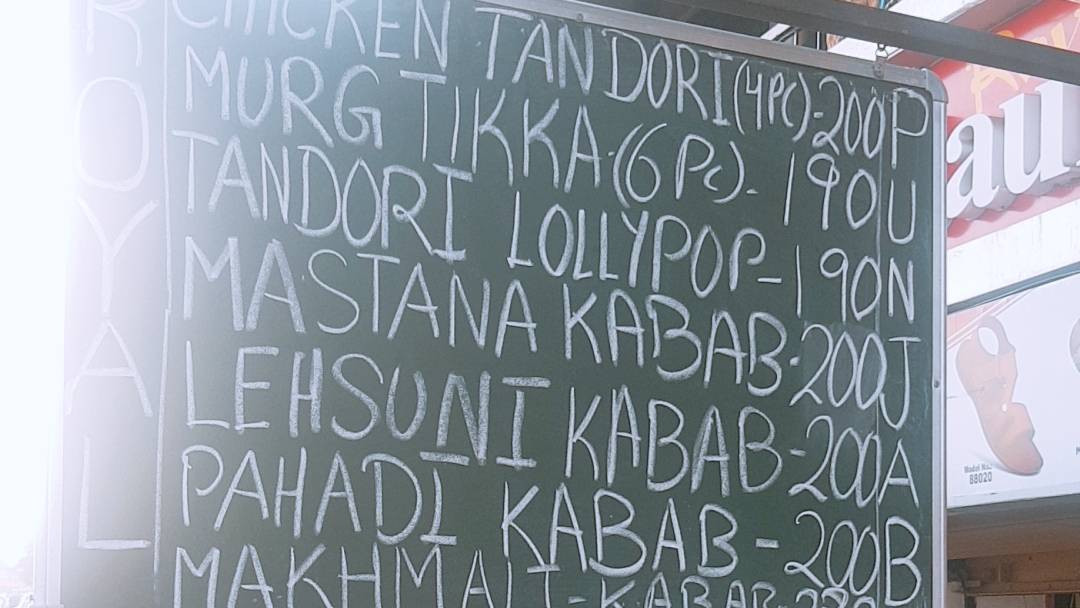 ROYAL
CHICKEN TANDORI (4PC)-200
MURG TIKKA-(6Pc).-190
TANDORI LOLLYPOP-190
MASTANA KABAB-200
LEHSUNI KABAB-200
PAHADI KABAB-200
KABAB
PUNJAB
au
Model No.
88020